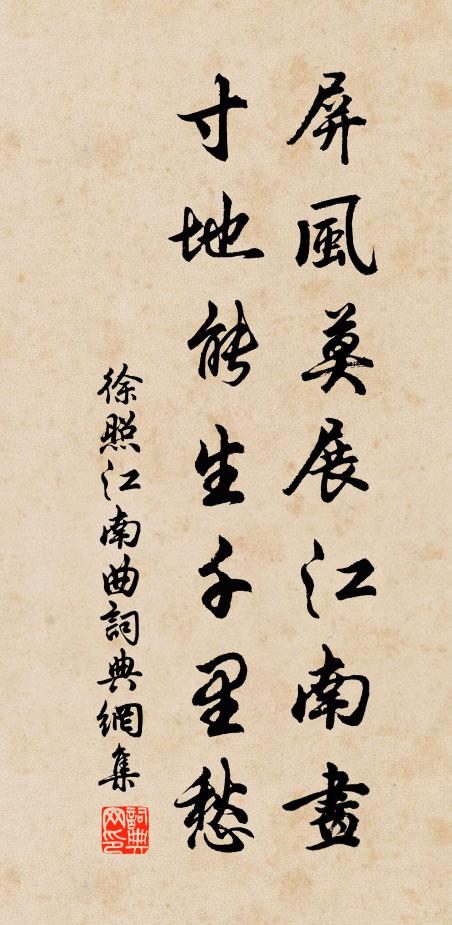 屏風莫展江南畫
寸地能生千里愁
徐照江南曲詞典網集
詞典网印